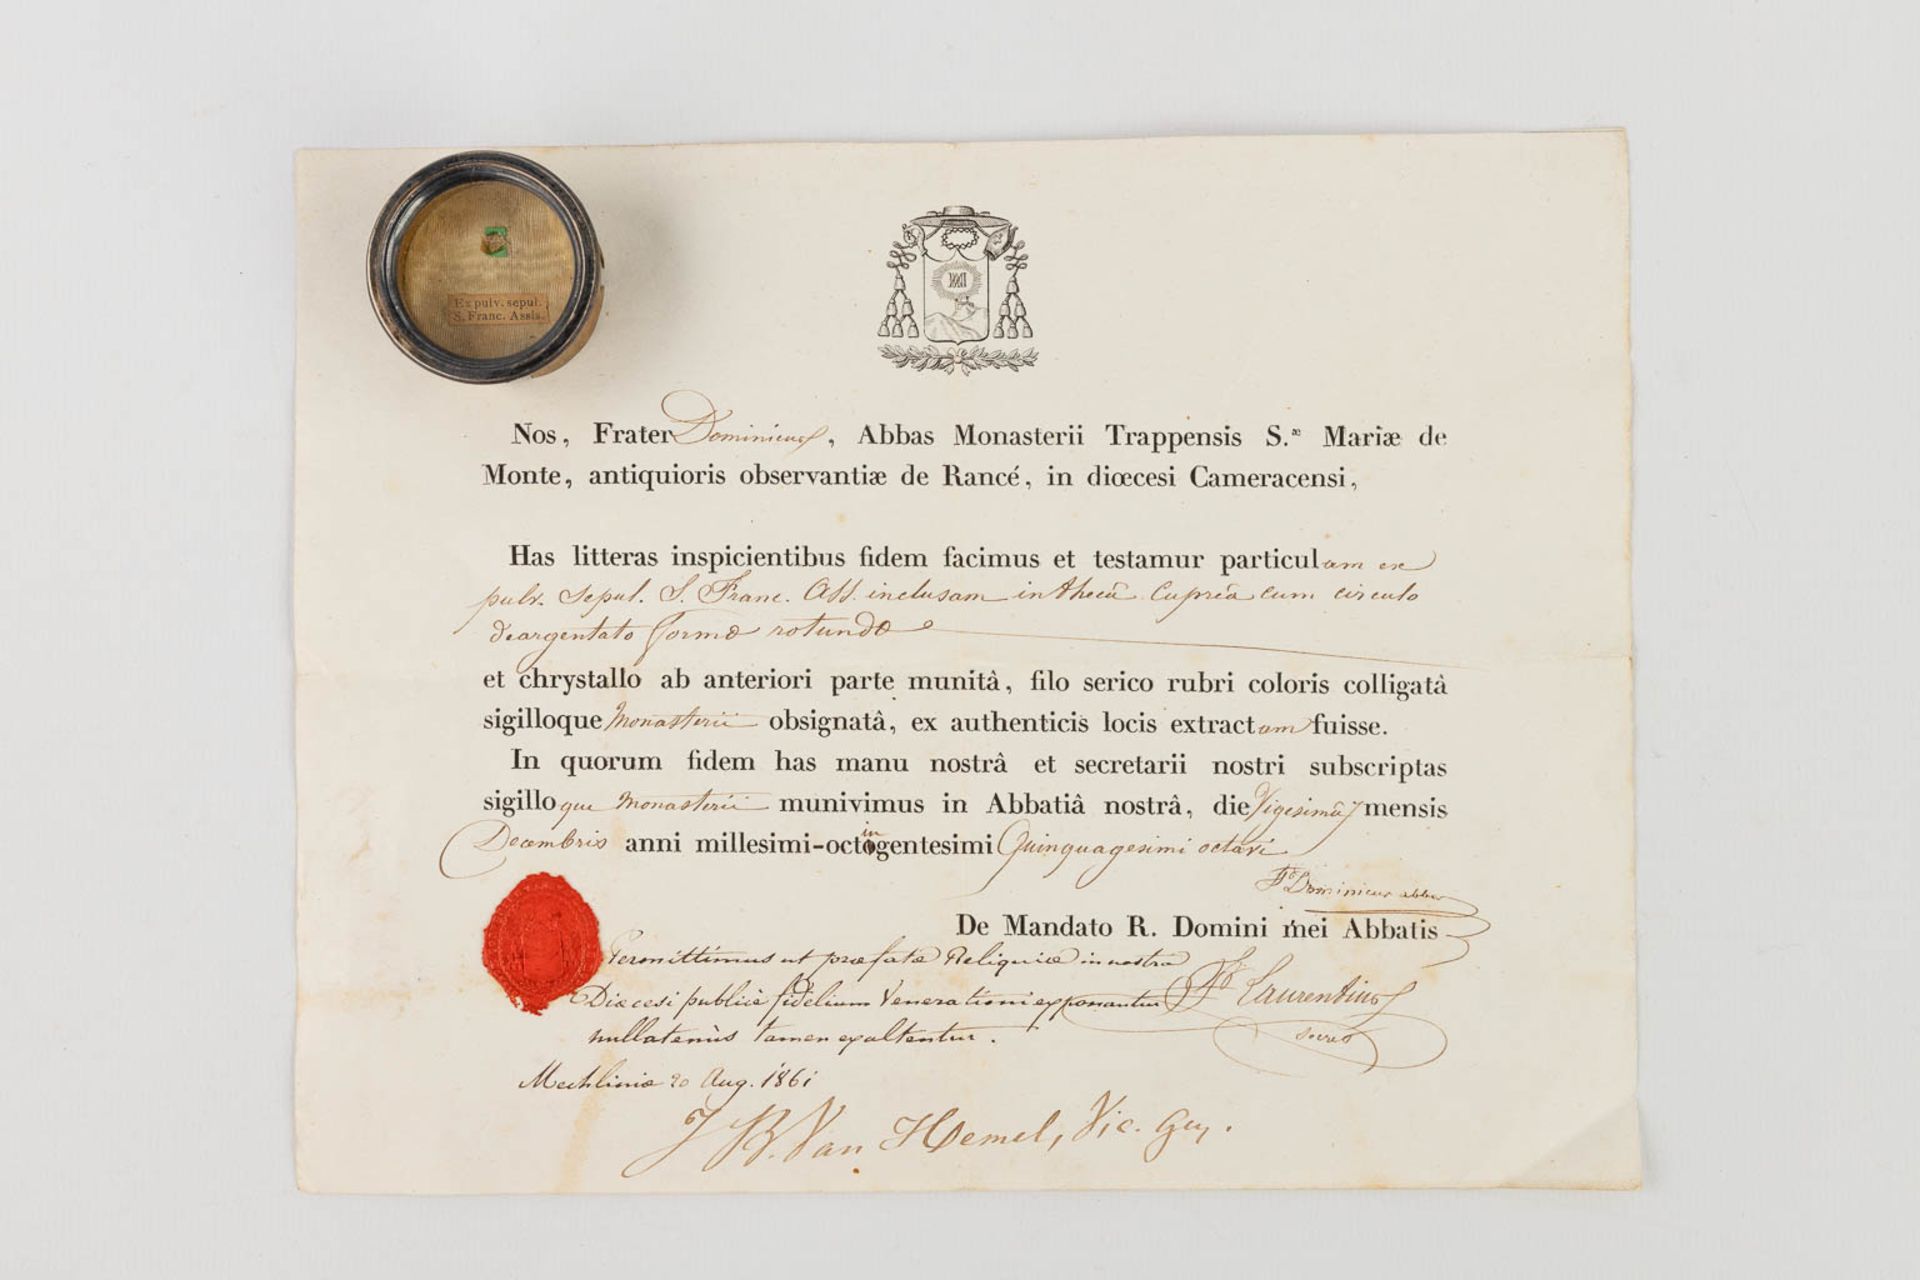 Ex pulv. sepul.
S. Franc. Assis.
Nos, Frater Dominicus, Abbas Monasterii Trappensis S.æ Mariæ de
Monte, antiquioris observantiæ de Rancé, in diœcesi Cameracensi,
Has litteras inspicientibus fidem facimus et testamur particulam ex
pulv. sepul. S. Franc. Ass. inclusam in thecâ cupreâ cum circulo
deargentato formæ rotundæ
et chrystallo ab anteriori parte munitâ, filo serico rubri coloris colligatâ
sigilloque Monasterii obsignatâ, ex authenticis locis extractam fuisse.
In quorum fidem has manu nostrâ et secretarii nostri subscriptas
sigilloque monasterii munivimus in Abbatiâ nostrâ, die Vigesimâ mensis
Decembris anni millesimi-octingentesimi Quinquagesimi octavi
Fr. Dominicus abbas
De Mandato R. Domini mei Abbatis
Permittimus ut præfatæ Reliquiæ in nostra
Diœcesi publicè fidelium Venerationi exponantur Fr. Laurentius
nullatenùs tamen exaltentur. secret
Mechliniæ 20 Aug. 1861
J B. Van Hemel, Vic. Gen.